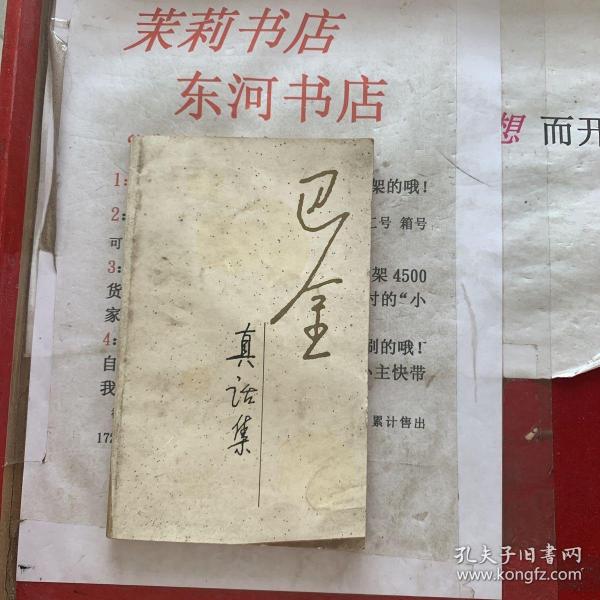 茉莉书店
东河书店
想 而开
1: 架的哦！
2: 二号 箱号
可
3: 架4500
货 时的“小
家
4: 刷的哦！
自 小主快带
我
172 累计售出
巴金
真话集
孔夫子旧书网
www.kongfz.com